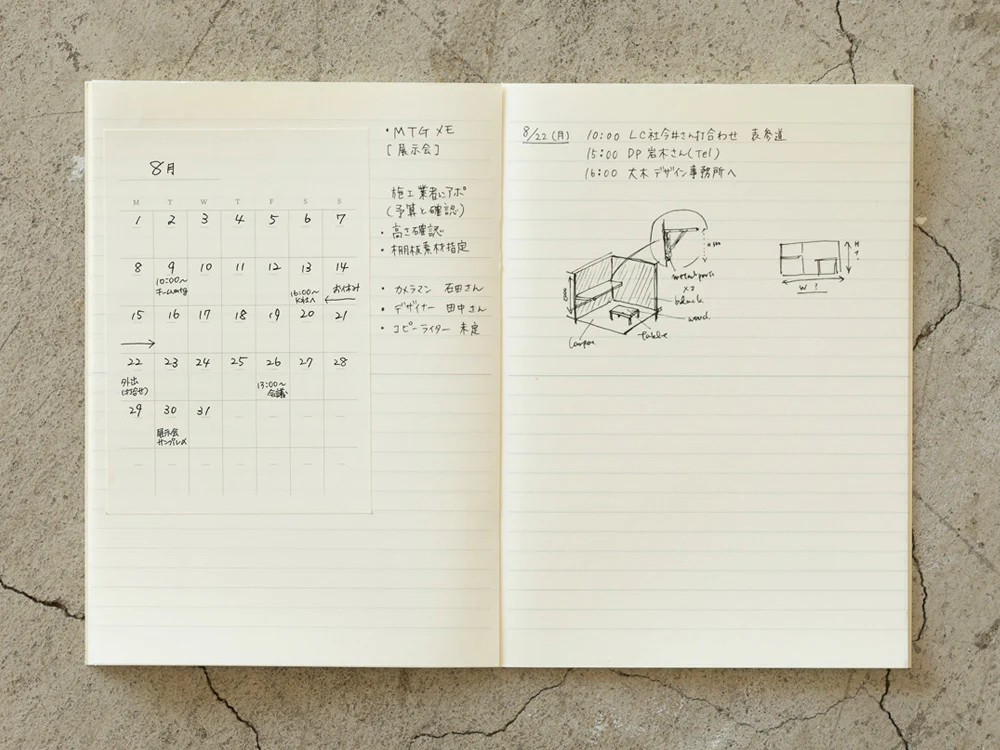 8月
M T W T F S S
1 2 3 4 5 6 7
8 9 10 11 12 13 14
10:00〜
チームmtg
16:00〜
K社へ
お休み
15 16 17 18 19 20 21
22 23 24 25 26 27 28
外出
(打合せ)
13:00〜
会議
29 30 31
展示会
サンプル〆
・MTG メモ
[展示会]
施工業者にアポ
(予算と確認)
・高さ確認
・棚板素材指定
・カメラマン 石田さん
・デザイナー 田中さん
・コピーライター 未定
8/22(月) 10:00 LC社今井さん打合わせ 表参道
15:00 DP 岩木さん(Tel)
16:00 大木デザイン事務所へ
metal parts
x2
black
wood
table
H?
W?